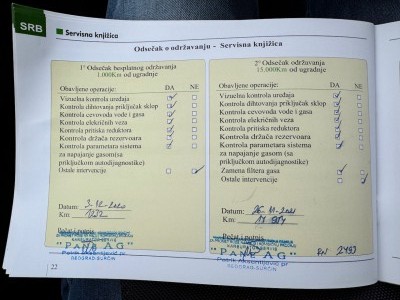 SRB
Servisna knjižica
Odsečak o održavanju - Servisna knjižica
1° Odsečak besplatnog održavanja
1.000Km od ugradnje
Obavljene operacije: DA NE
Vizuelna kontrola uređaja
Kontrola dihtovanja priključak sklop
Kontrola cevovoda vode i gasa
Kontrola elekričnih veza
Kontrola pritiska reduktora
Kontrola držača rezervoara
Kontrola parametara sistema
za napajanje gasom(sa
priključkom autodijagnostike)
Ostale intervencije
Datum: 3.12.2020
Km: 1032
Pečat i potpis
"PANE AG"
Petrik Aksentijević pr
BEOGRAD-SURČIN
22
2° Odsečak održavanja
15.000Km od ugradnje
Obavljene operacije: DA NE
Vizuelna kontrola uređaja
Kontrola dihtovanja priključak sklop
Kontrola cevovoda vode i gasa
Kontrola elekričnih veza
Kontrola pritiska reduktora
Kontrola držača rezervoara
Kontrola parametara sistema
za napajanje gasom (sa
priključkom autodijagnostike)
Zamena filtera gasa
Ostale intervencije
Datum: 26.11.2021
Km:
Pečat i potpis
"PANE AG"
Petrik Aksentijević pr
BEOGRAD-SURČIN
RN 2493